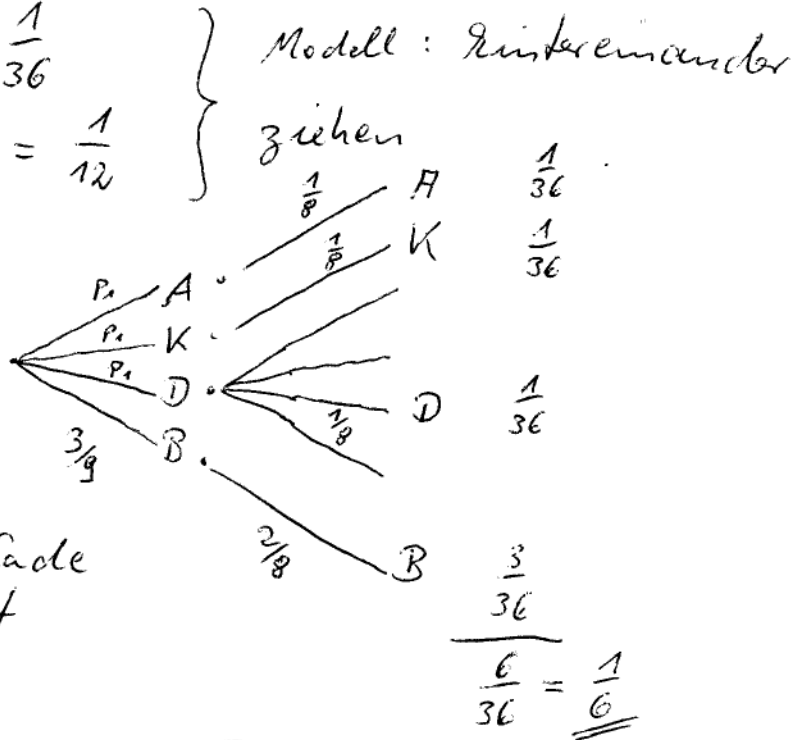 1/36
= 1/12
Modell : Hintereinander
ziehen
1/8 A 1/36
1/8 K 1/36
P₁ A
P₁ K
P₁ D 1/8 D 1/36
3/9 B 2/8 B 3/36
ade
t
6/36 = 1/6